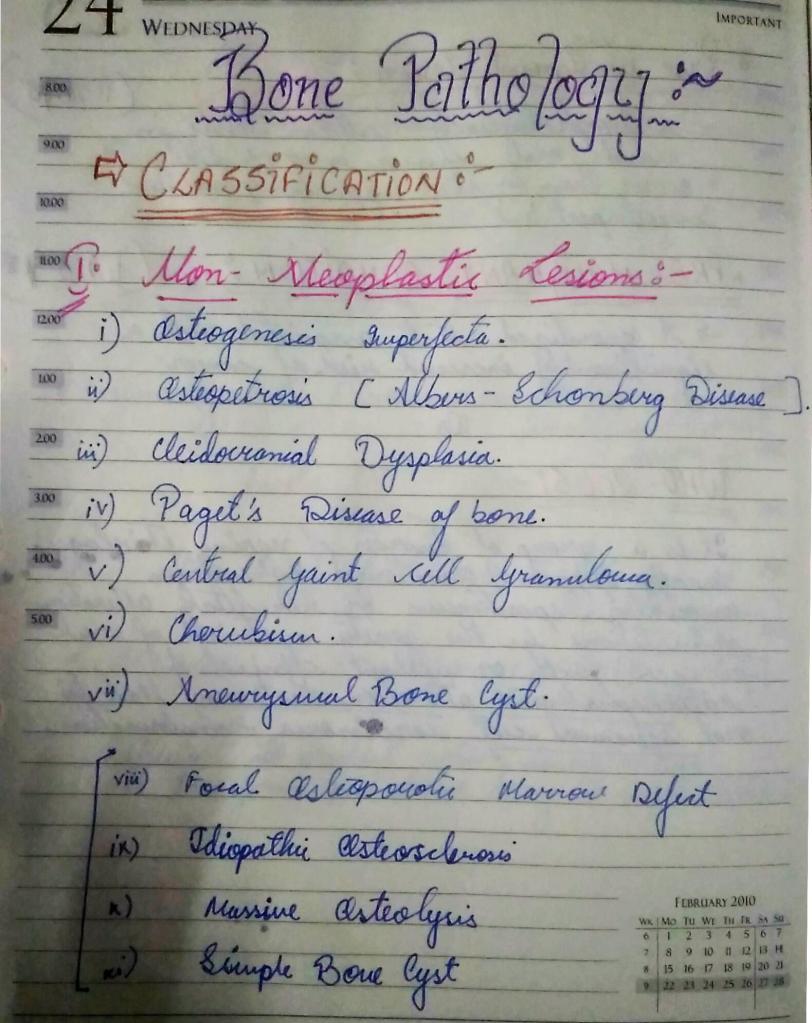 24 WEDNESDAY IMPORTANT
Bone Pathology :~
8.00
9.00
⇨ CLASSIFICATION :-
10.00
11.00
I. Non- Neoplastic Lesions :-
12.00
i) Osteogenesis Imperfecta.
1.00
ii) Osteopetrosis [ Albers - Schonberg Disease ].
2.00
iii) Cleidocranial Dysplasia.
3.00
iv) Paget's Disease of bone.
4.00
v) Central Gaint Cell Granuloma.
5.00
vi) Cherubism.
vii) Aneurysmal Bone Cyst.
viii) Focal Osteoporotic Marrow Defect
ix) Idiopathic Osteosclerosis
x) Massive Osteolysis
xi) Simple Bone Cyst
FEBRUARY 2010
WK MO TU WE TH FR SA SU
6 1 2 3 4 5 6 7
7 8 9 10 11 12 13 14
8 15 16 17 18 19 20 21
9 22 23 24 25 26 27 28